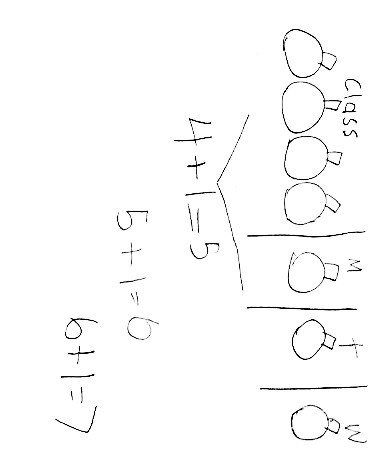 Class M T W
4+1=5
5+1=6
6+1=7